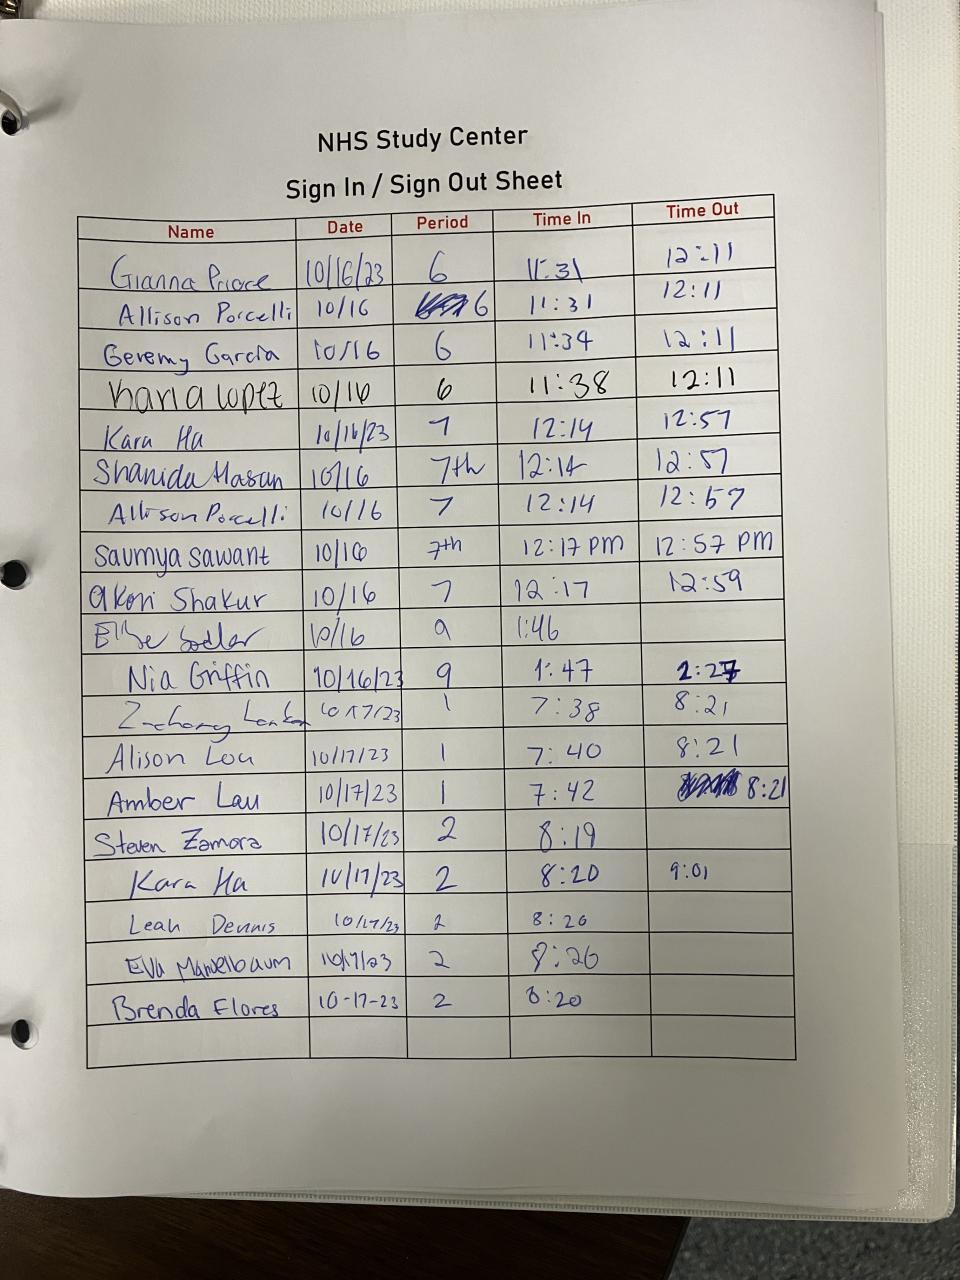 NHS Study Center
Sign In / Sign Out Sheet
Name Date Period Time In Time Out
Gianna Priore 10/16/23 6 11:31 12:11
Allison Porcelli 10/16 6 11:31 12:11
Geremy Garcia 10/16 6 11:34 12:11
Karla Lopez 10/16 6 11:38 12:11
Kara Ha 10/16/23 7 12:14 12:57
Shanida Hasan 10/16 7th 12:14 12:57
Allison Porcelli 10/16 7 12:14 12:57
Saumya Sawant 10/16 7th 12:17 PM 12:57 PM
Akori Shakur 10/16 7 12:17 12:59
10/16 9 1:46
Nia Griffin 10/16/23 9 1:47 2:27
Zachary 10/17/23 1 7:38 8:21
Alison Lou 10/17/23 1 7:40 8:21
Amber Lau 10/17/23 1 7:42 8:21
Steven Zamora 10/17/23 2 8:19
Kara Ha 10/17/23 2 8:20 9:01
Leah Dennis 10/17/23 2 8:20
Eva Mandelbaum 10/17/23 2 8:20
Brenda Flores 10-17-23 2 8:20